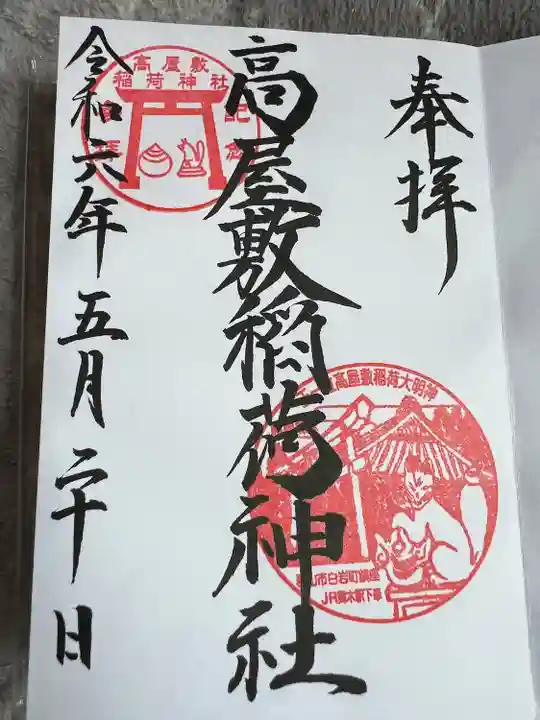 奉拝
高屋敷稲荷神社
令和六年五月二十日
高屋敷
稲荷神社
高屋敷稲荷大明神
市白岩町鎮座